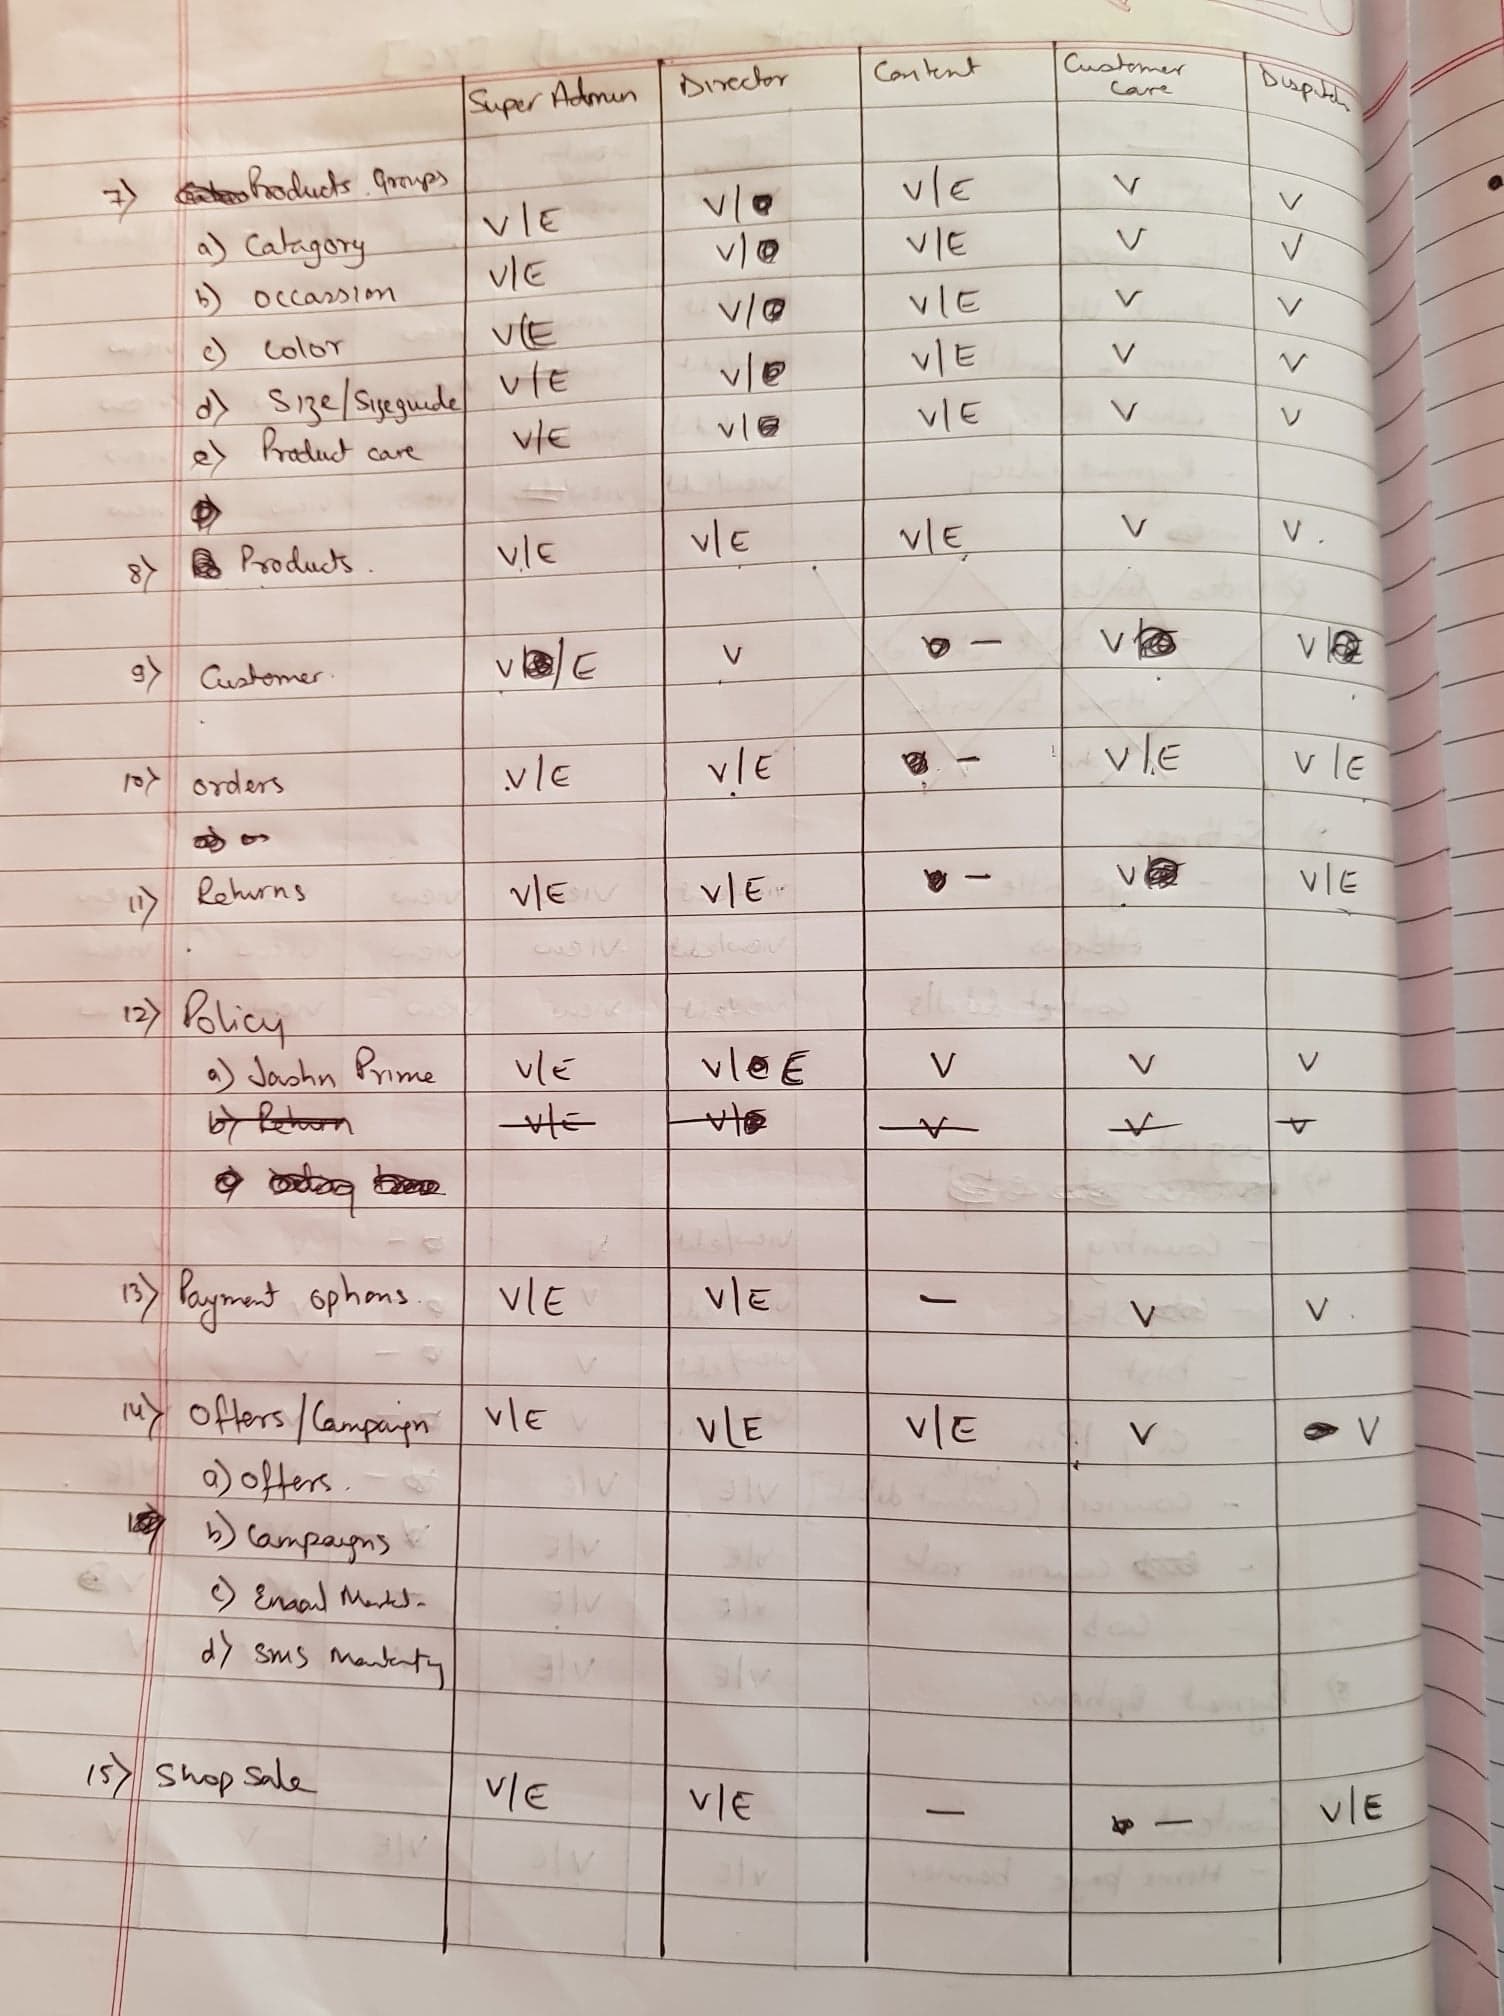 Super Admin Director Content Customer Care Dispatch
7) Products Groups
a) Catagory V/E V/ V/E V V
b) occassion V/E V/ V/E V V
c) Color V/E V/ V/E V V
d) Size/Sizeguide V/E V/ V/E V V
e) Product care V/E V/ V/E V V
8) Products. V/E V/E V/E V V.
9) Customer. V/E V - V V
10) orders V/E V/E - V/E V/E
11) Returns V/E V/E - V V/E
12) Policy
a) Jashn Prime V/E V/E V V V
b) Return V/E V/ V V V
13) Payment options. V/E V/E - V V.
14) Offers/Campaign V/E V/E V/E V V
a) Offers.
b) Campaigns
c) Email Markt.
d) SMS Marketing
15) Shop Sale V/E V/E - - V/E